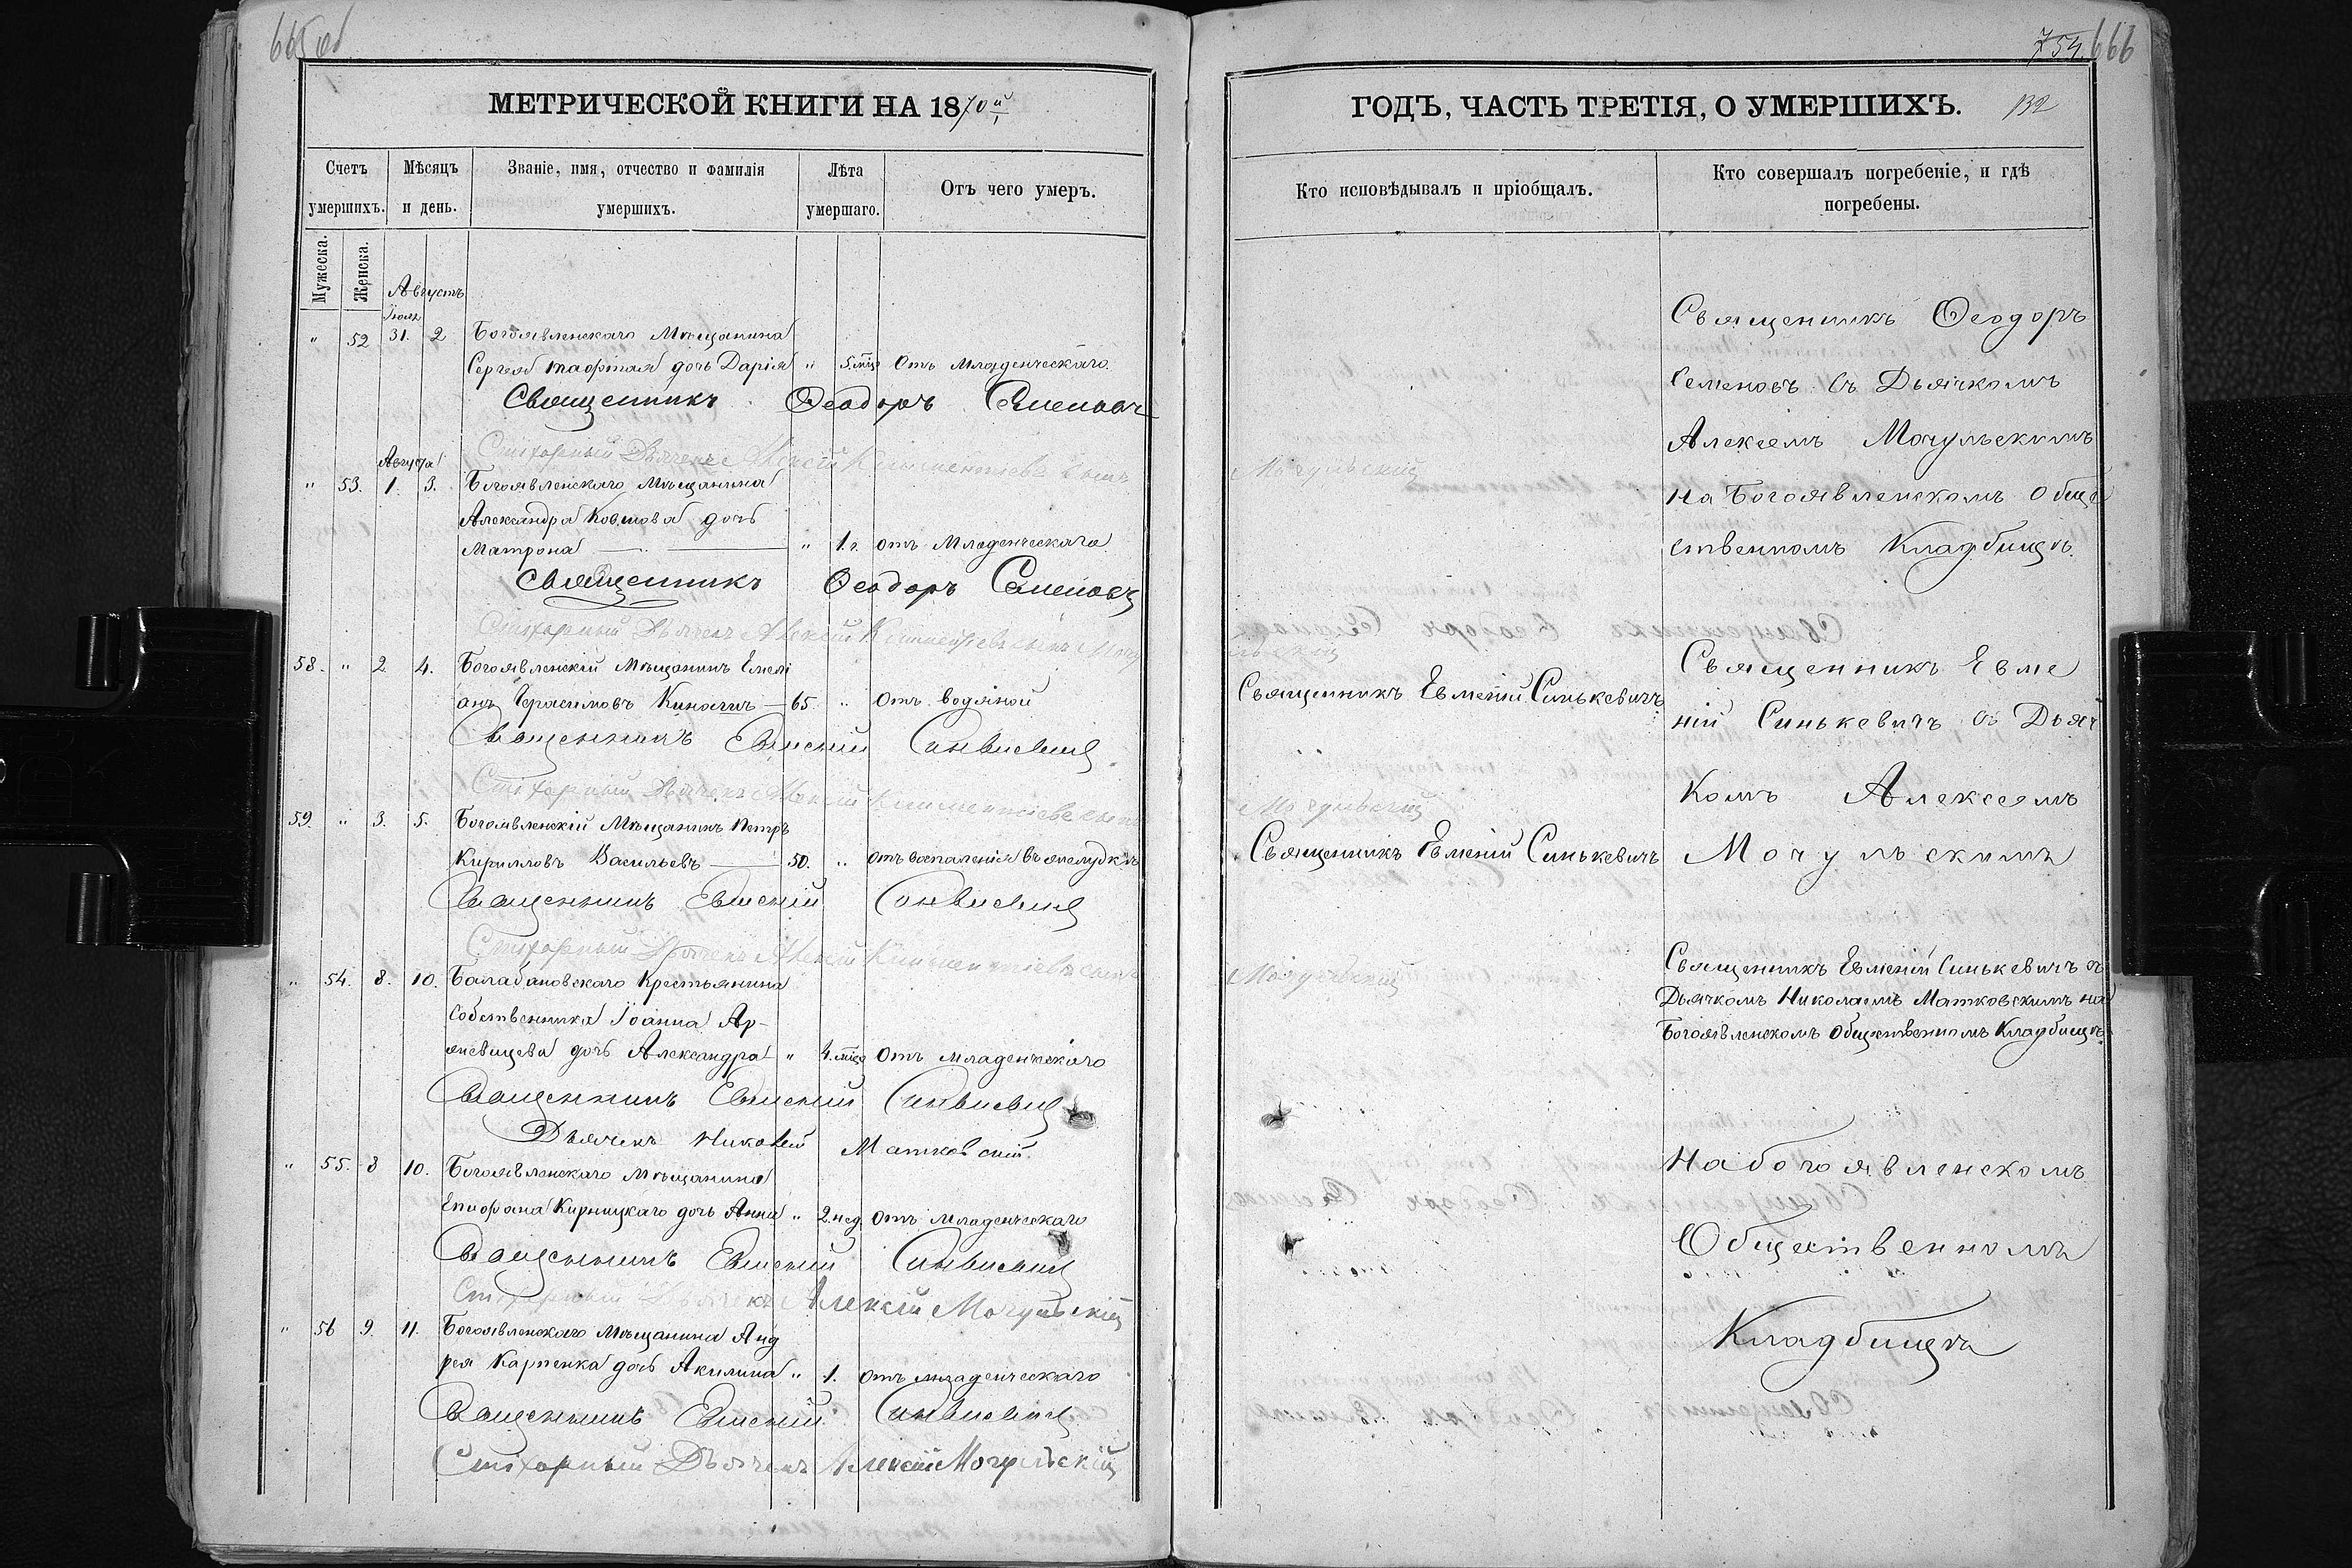 665 об
МЕТРИЧЕСКОЙ КНИГИ НА 1870й
Счетъ умершихъ.
Мѣсяцъ и день.
Званіе, имя, отчество и фамилія умершихъ.
Лѣта умершаго.
Отъ чего умеръ.
Мужеска.
Женска.
Августъ
Іюля
" 52 31. 2 Богоявленскаго Мѣщанина
Сергея дочь Дарія " 5. мѣс Отъ младенческаго.
Священникъ Ѳеодоръ Семеновъ
Стихарный Дьячекъ Алексій Климентіевъ сынъ
Августа
" 53. 1. 3. Богоявленскаго Мѣщанина
Александра Ковшова дочь
Матрона " 1. г. отъ младенческаго
Священникъ Ѳеодоръ Семеновъ
Стихарный Дьячекъ Алексій Климентіевъ сынъ
58. " 2 4. Богоявленскій Мѣщанинъ Емели
анъ Герасимовъ 65. " отъ водяной
Священникъ Евменій Синькевичъ
Стихарный Дьячекъ Алексій Климентіевъ сынъ
59. " 3. 5. Богоявленскій Мѣщанинъ Петръ
Кирилловъ Васильевъ 50. " отъ воспаленія въ желудкѣ
Священникъ Евменій Синькевичъ
Стихарный Дьячекъ Алексій Климентіевъ сынъ
" 54. 8. 10. Балабановскаго Крестьянина
Собственника Іоанна Ар-
дочь Александра " 4. мѣс отъ младенческаго
Священникъ Евменій Синькевичъ
Дьячекъ Николай Матковскій.
" 55. 8 10. Богоявленскаго Мѣщанина
Епифана Кирницкаго дочь Анна " 2. нед. отъ младенческаго
Священникъ Евменій Синькевичъ
Стихарный Дьячекъ Алексій Мочульскій
" 56 9. 11. Богоявленскаго Мѣщанина Анд
рея Карпенка дочь Акилина " 1. отъ младенческаго
Священникъ Евменій Синькевичъ
Стихарный Дьячекъ Алексій Мочульскій
754. 666
ГОДЪ, ЧАСТЬ ТРЕТІЯ, О УМЕРШИХЪ. 132
Кто исповѣдывалъ и пріобщалъ.
Кто совершалъ погребеніе, и гдѣ
погребены.
Священникъ Ѳеодоръ
Семеновъ съ Дьячкомъ
Алексеемъ Мочульскимъ
Мочульскій
на Богоявленскомъ обще
ственномъ Кладбищѣ.
Священникъ Евме
Священникъ Евменій Синькевичъ
ній Синькевичъ съ Дьяч
комъ Алексеемъ
Мочульскій
Священникъ Евменій Синькевичъ
Мочульскимъ
Священникъ Евменій Синькевичъ съ
Мочульскій
Дьячкомъ Николаемъ Матковскимъ на
Богоявленскомъ Общественномъ Кладбищѣ.
На богоявленскомъ
Общественномъ
Кладбищѣ